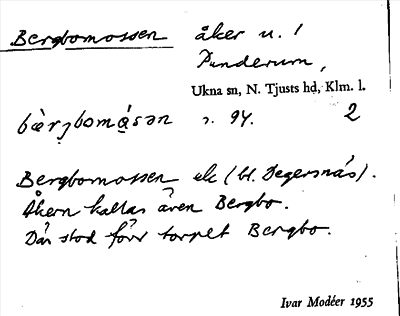 Bergbomossen åker u. 1
Punderum,
Ukna sn, N. Tjusts hd, Klm. l.
bæ̀rjbomå̀sən 94. 2
Bergbomossen ek (bl. Degersnäs).
Åkern kallas även Bergbo.
Där stod förr torpet Bergbo.
Ivar Modéer 1955